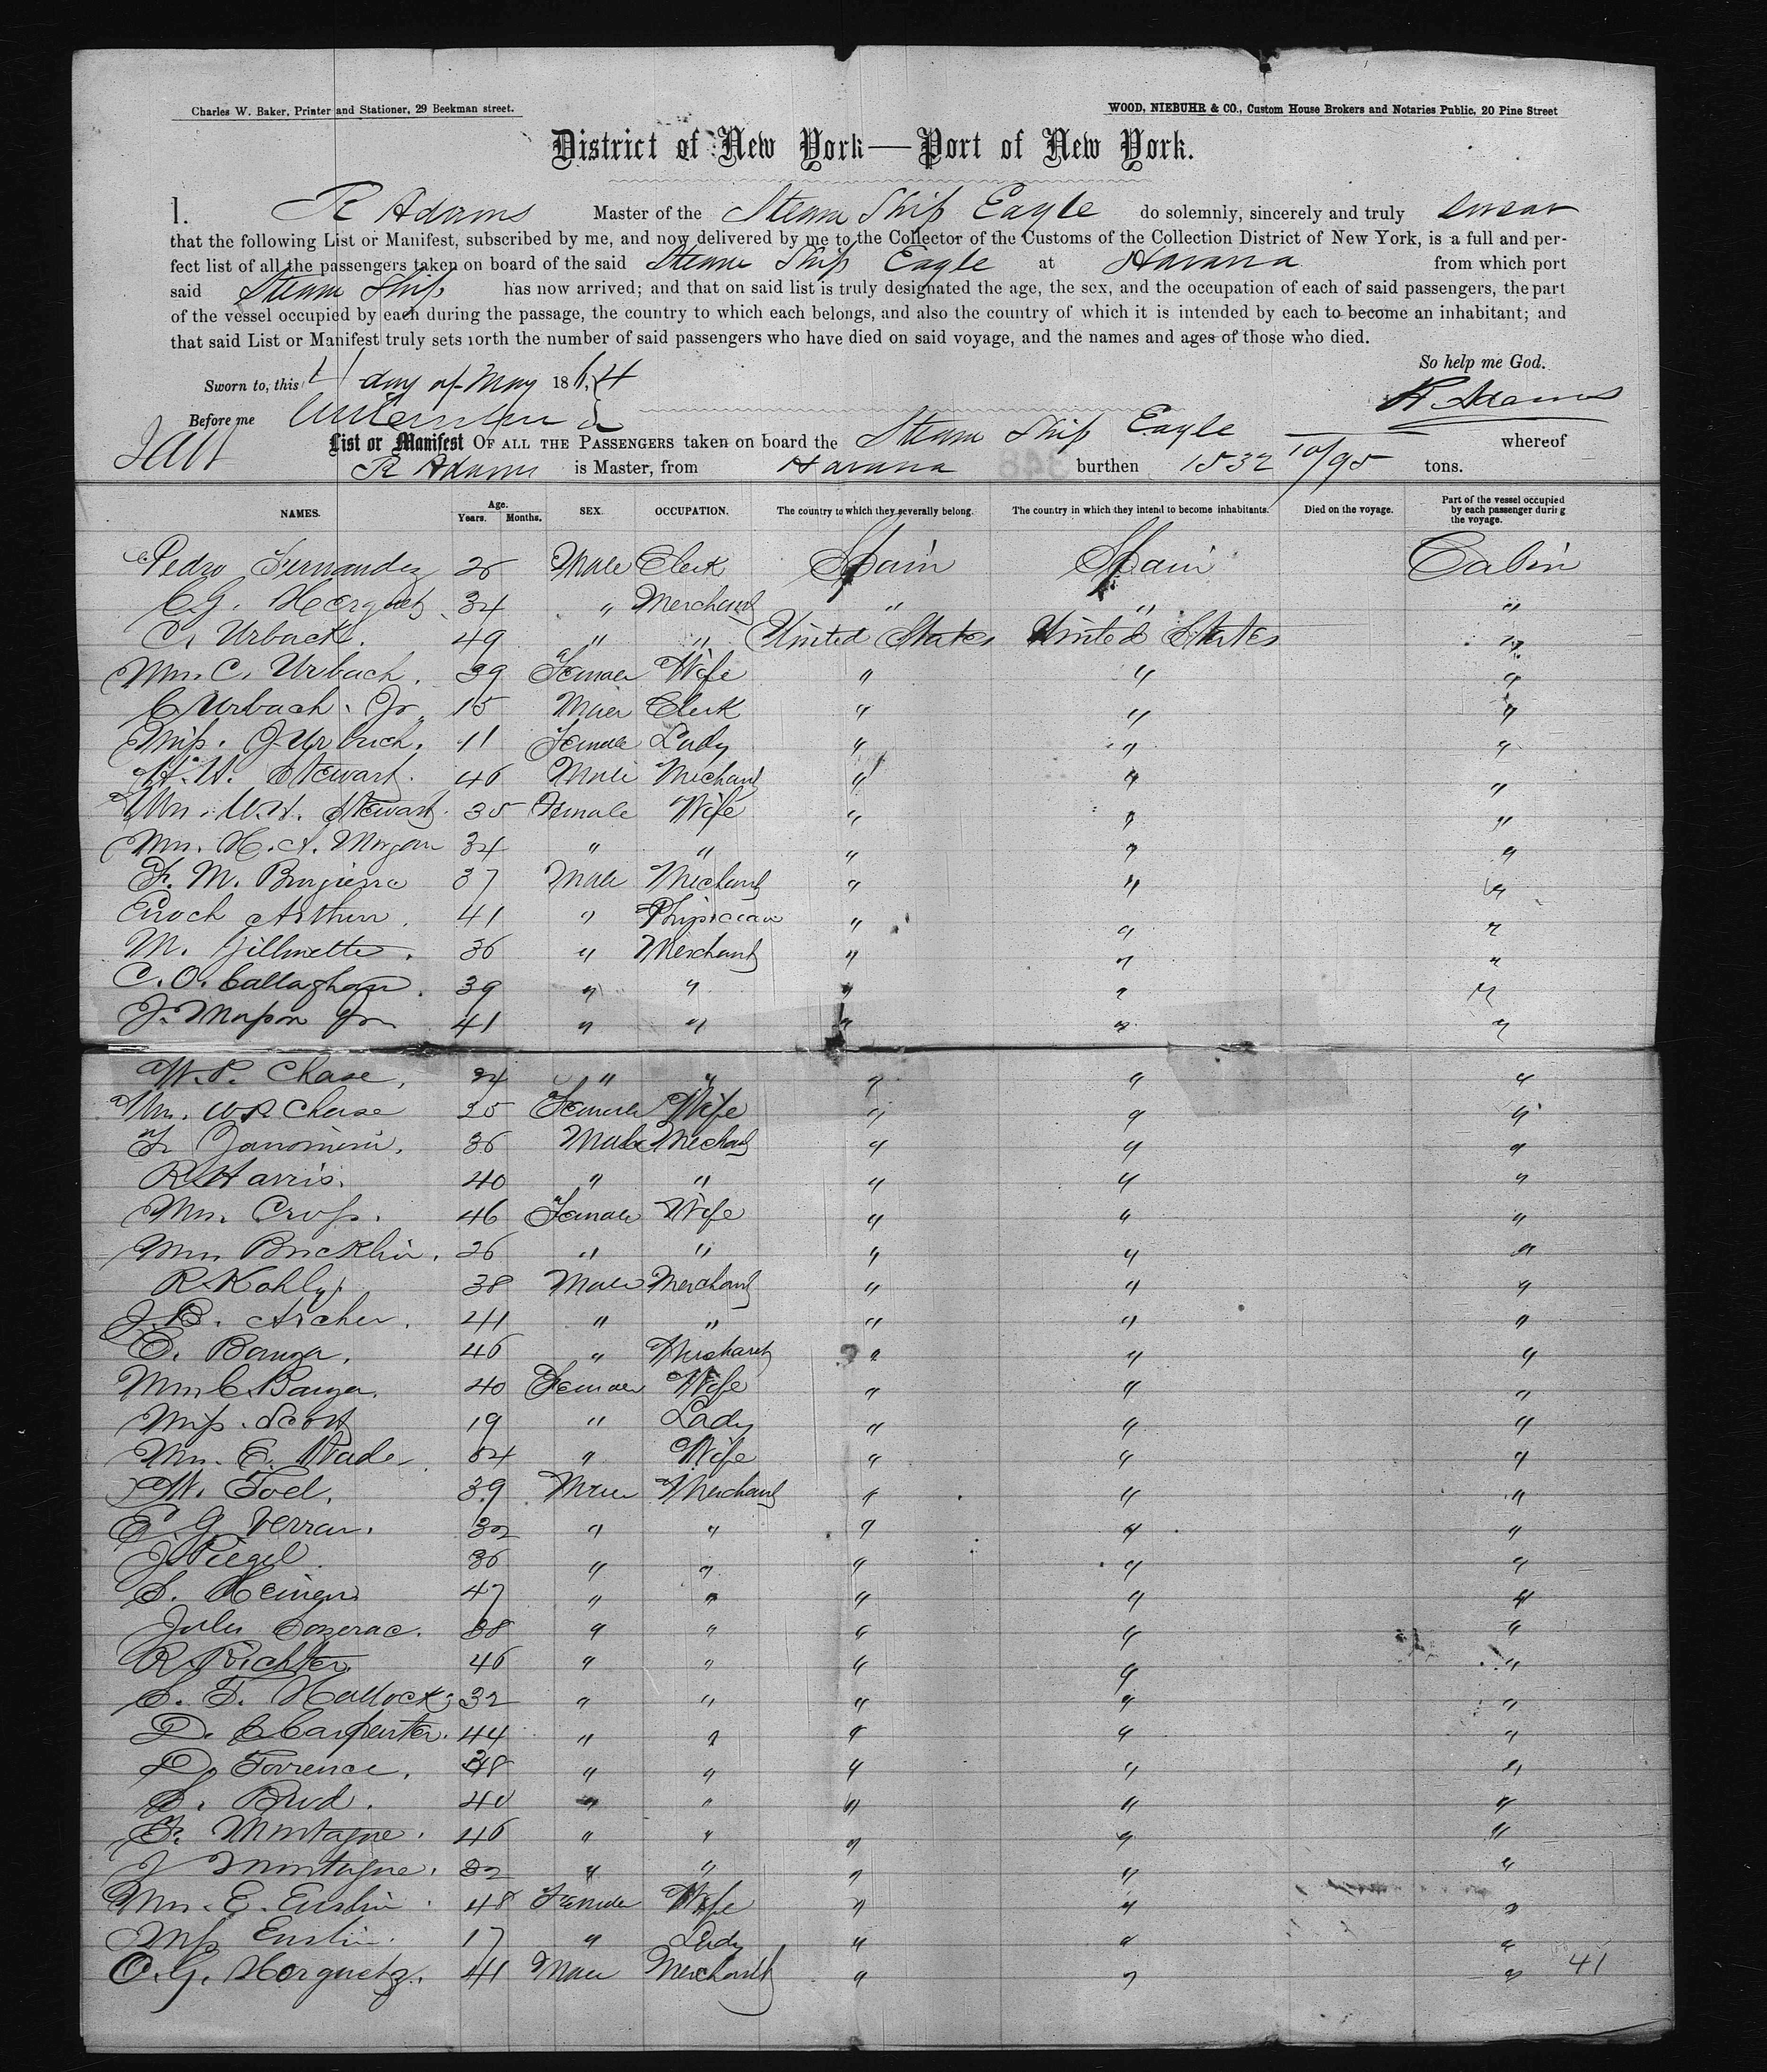 Charles W. Baker, Printer and Stationer, 29 Beekman street. WOOD, NIEBUHR & CO., Custom House Brokers and Notaries Public, 20 Pine Street
District of New York—Port of New York.
I. R Adams Master of the Steam Ship Eagle do solemnly, sincerely and truly swear
that the following List or Manifest, subscribed by me, and now delivered by me to the Collector of the Customs of the Collection District of New York, is a full and per-
fect list of all the passengers taken on board of the said Steam Ship Eagle at Havana from which port
said Steam Ship has now arrived; and that on said list is truly designated the age, the sex, and the occupation of each of said passengers, the part
of the vessel occupied by each during the passage, the country to which each belongs, and also the country of which it is intended by each to become an inhabitant; and
that said List or Manifest truly sets forth the number of said passengers who have died on said voyage, and the names and ages of those who died.
So help me God.
Sworn to, this day of May 1864
R Adams
Before me
List or Manifest OF ALL THE PASSENGERS taken on board the Steam Ship Eagle whereof
R Adams is Master, from Havana burthen 1532 10/95 tons.
NAMES. Age. Years. Months. SEX. OCCUPATION. The country to which they severally belong. The country in which they intend to become inhabitants. Died on the voyage. Part of the vessel occupied by each passenger during the voyage.
Pedro Fernandez 26 Male Clerk Spain Spain Cabin
C.G. Horguetz 34 " Merchant " " "
C. Urback. 49 " " United States United States "
Mrs. C. Urbach. 39 Female Wife " " "
C Urbach. Jr. 15 Male Clerk " " "
Miss. J Urbach. 11 Female Lady " " "
W. H. Stewart. 46 Male Merchant " " "
Mrs. W.H. Stewart. 35 Female Wife " " "
Mrs. H. A. Morgan 34 " " " " "
F. M. 37 Male Merchant " " "
Enoch Arthur. 41 " Physician " " "
M. Gillmette. 36 " Merchant " " "
C. O. Callaghan. 39 " " " " "
J. Mason Jr. 41 " " " " "
W. P. Chase. 24 " " " " "
Mrs. W P Chase 25 Female Wife " " "
F. 36 Male Merchant " " "
R Harris. 40 " " " " "
Mrs. Cross. 46 Female Wife " " "
Mrs Bricklin. 26 " " " " "
R Kohly. 38 Male Merchant " " "
J. B. Archer. 41 " " " " "
C. Bauza. 46 " Merchant " " "
Mrs C Bauza. 40 Female Wife " " "
Miss. Scott 19 " Lady " " "
Mrs. E. Wade. 34 " Wife " " "
W. Foel. 39 Male Merchant " " "
E. G. Verran. 32 " " " " "
J. Piegel. 36 " " " " "
S. Heinen 47 " " " " "
Jules 38 " " " " "
R Richter. 46 " " " " "
S. T. Hallock 32 " " " " "
D. C Carpenter. 44 " " " " "
D. Torrence. 38 " " " " "
S. Bird. 40 " " " " "
F. Montagne. 46 " " " " "
J Montagne. 32 " " " " "
Mrs. E. Euslin. 48 Female Wife " " "
Miss Euslin. 17 " Lady " " "
C. G. Horguetz. 41 Male Merchant " " " 41